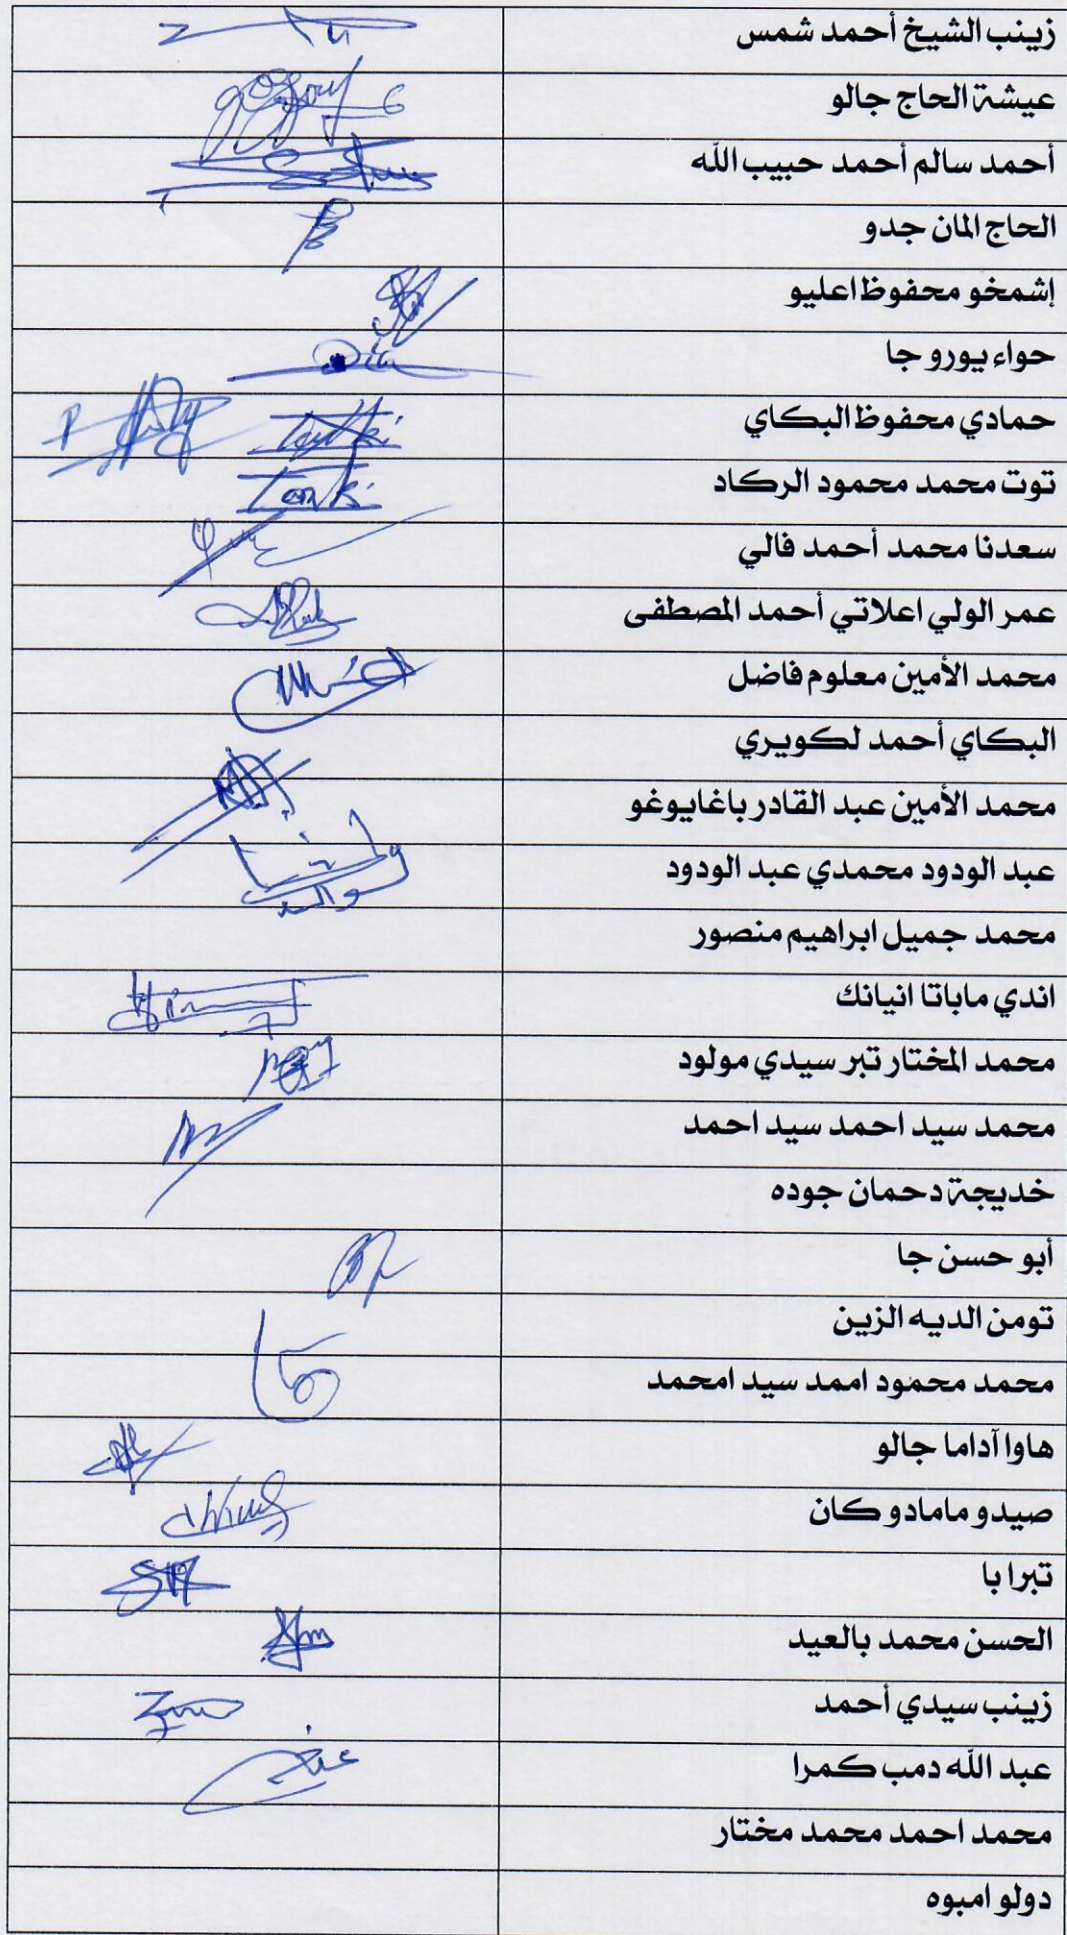 زينب الشيخ أحمد شمس
عيشة الحاج جالو
أحمد سالم أحمد حبيب الله
الحاج المان جدو
إشمخو محفوظ اعليو
حواء يورو جا
حمادي محفوظ البكاي
توت محمد محمود الركاد
سعدنا محمد أحمد فالي
عمر الولي اعلاتي أحمد المصطفى
محمد الأمين معلوم فاضل
البكاي أحمد لكويري
محمد الأمين عبد القادر باغايوغو
عبد الودود محمدي عبد الودود
محمد جميل ابراهيم منصور
اندي ماباتا انيانك
محمد المختار تبر سيدي مولود
محمد سيد احمد سيد احمد
خديجة دحمان جوده
أبو حسن جا
تومن الديه الزين
محمد محمود اممد سيد امحمد
هاوا آداما جالو
صيدو مامادو كان
تبرا با
الحسن محمد بالعيد
زينب سيدي أحمد
عبد الله دمب كمرا
محمد احمد محمد مختار
دولو امبوه